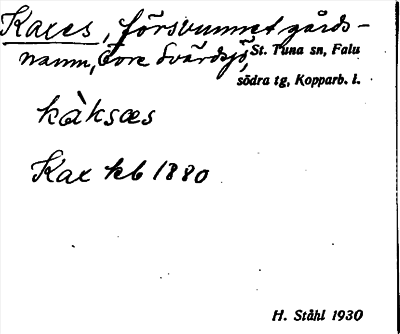 Kaxes, försvunnet gårds-
namn, Övre Svärdsjö, St. Tuna sn, Falu
södra tg, Kopparb. l.
kàksæs
Kax kb 1880
H. Ståhl 1930